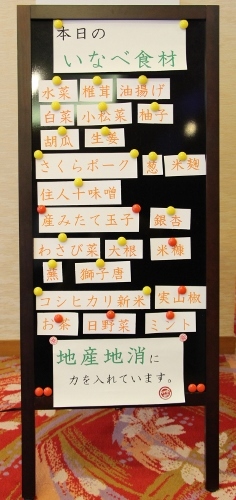 本日の
いなべ食材
水菜 椎茸 油揚げ
白菜 小松菜 柚子
胡瓜 生姜
さくらポーク 葱 米麹
住人十味噌
産みたて玉子 銀杏
わさび菜 大根 米糠
蕪 獅子唐
コシヒカリ新米 実山椒
お茶 日野菜 ミント
地産地消に
力を入れています。